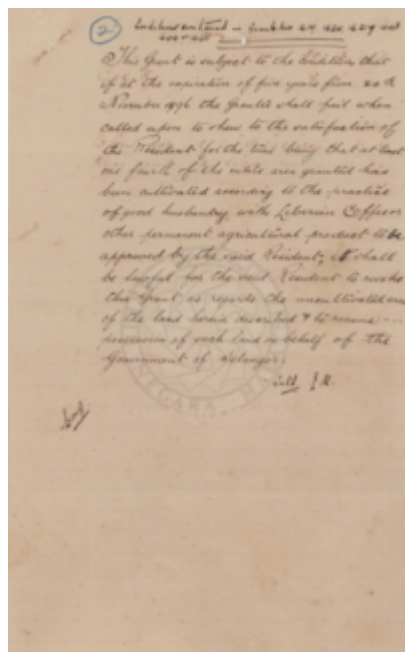 2
Conditions contained in Grants Nos
This Grant is subject to the Condition that
if at the expiration of five years from 20th
November 1896 the Grantee shall fail when
called upon to show to the satisfaction of
the Resident for the time being that at least
one fourth of the entire area granted has
been cultivated according to the practice
of good husbandry with Liberian Coffee or
other permanent agricultural product to be
approved by the said Resident, it shall
be lawful for the said Resident to revoke
this Grant as regards the uncultivated area
of the land herein described & to resume
possession of such land on behalf of the
Government of Selangor.
NEGARA